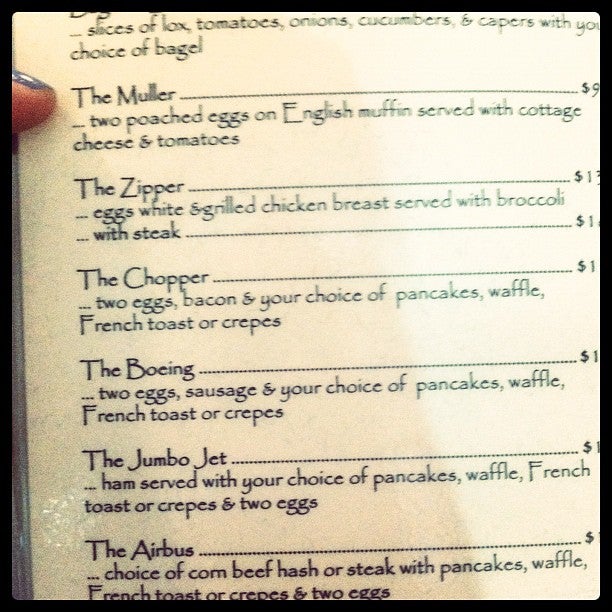 ... slices of lox, tomatoes, onions, cucumbers, & capers with
choice of bagel
The Muller $9
... two poached eggs on English muffin served with cottage
cheese & tomatoes
The Zipper $1
... eggs white &grilled chicken breast served with broccoli
... with steak $1
The Chopper $1
... two eggs, bacon & your choice of pancakes, waffle,
French toast or crepes
The Boeing $1
... two eggs, sausage & your choice of pancakes, waffle,
French toast or crepes
The Jumbo Jet $1
... ham served with your choice of pancakes, waffle, French
toast or crepes & two eggs
The Airbus $
... choice of corn beef hash or steak with pancakes, waffle,
French toast or crepes & two eggs